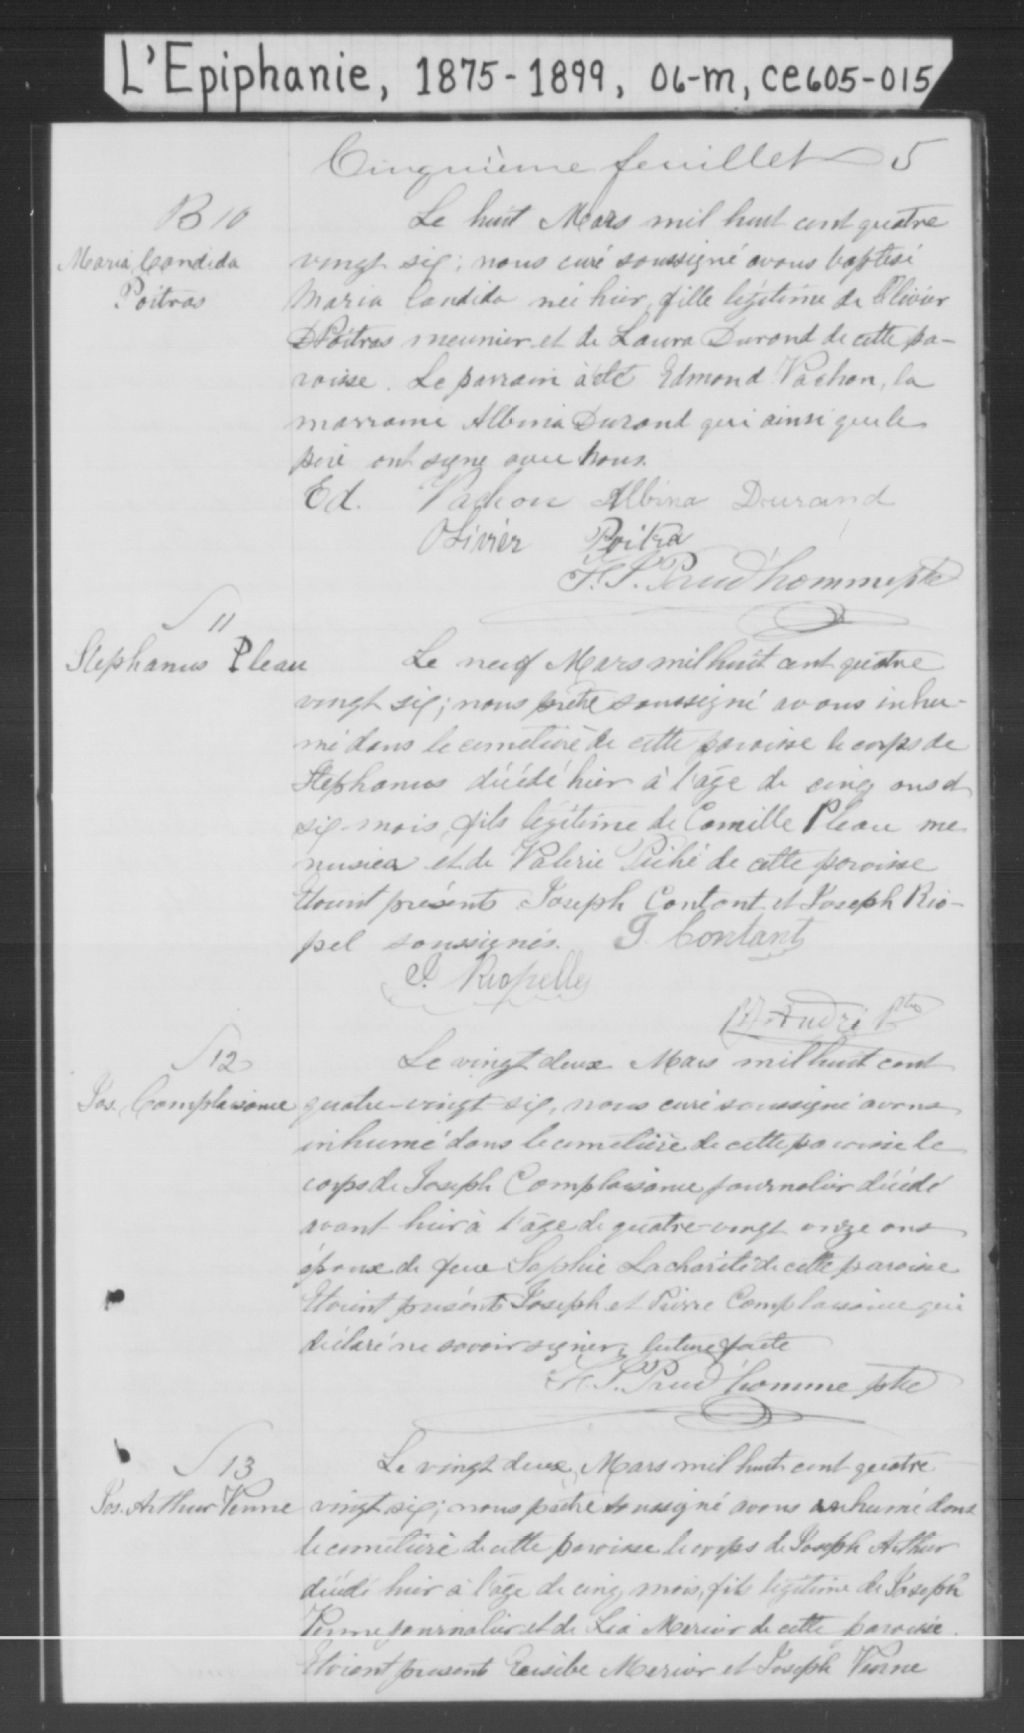 L'Epiphanie, 1875-1899, 06-m, ce605-015
Cinquième feuillet 5
B 10
Maria Candida
Poitras
Le huit Mars mil huit cent quatre
vingt six; nous curé soussigné avons baptisé
Maria Candida née hier, fille légitime de Olivier
Poitras meunier et de Laura Durand de cette pa-
roisse. Le parrain a été Edmond Vachon, la
marraine Albina Durand qui ainsi que le
père ont signé avec nous.
Ed. Vachon Albina Durand
Olivier Poitra
F. S. Prud'homme ptre
S 11
Stephanus Pleau
Le neuf Mars mil huit cent quatre
vingt six; nous prêtre soussigné avons inhu-
mé dans le cimetière de cette paroisse le corps de
Stephanus décédé hier à l'âge de cinq ans et
six mois, fils légitime de Camille Pleau me
nusier et de Valerie Piché de cette paroisse
Etaient présents Joseph Contant et Joseph Rio-
pel soussignés. J. Contant
J. Riopelle
André Ptre
S 12
Jos. Complaisance
Le vingt deux Mars mil huit cent
quatre-vingt six, nous curé soussigné avons
inhumé dans le cimetière de cette paroisse le
corps de Joseph Complaisance journalier décédé
avant hier à l'âge de quatre-vingt onze ans
époux de feue Sophie Lacharité de cette paroisse
Etaient présents Joseph et Pierre Complaisance qui
déclaré ne savoir signer, lecture faite
F. S. Prud'homme ptre
S 13
Jos. Arthur Venne
Le vingt deux Mars mil huit cent quatre
vingt six; nous prêtre soussigné avons inhumé dans
le cimetière de cette paroisse le corps de Joseph Arthur
décédé hier à l'âge de cinq mois, fils légitime de Joseph
Venne journalier et de Lia Mercier de cette paroisse.
Etaient présents Mercier et Joseph Venne